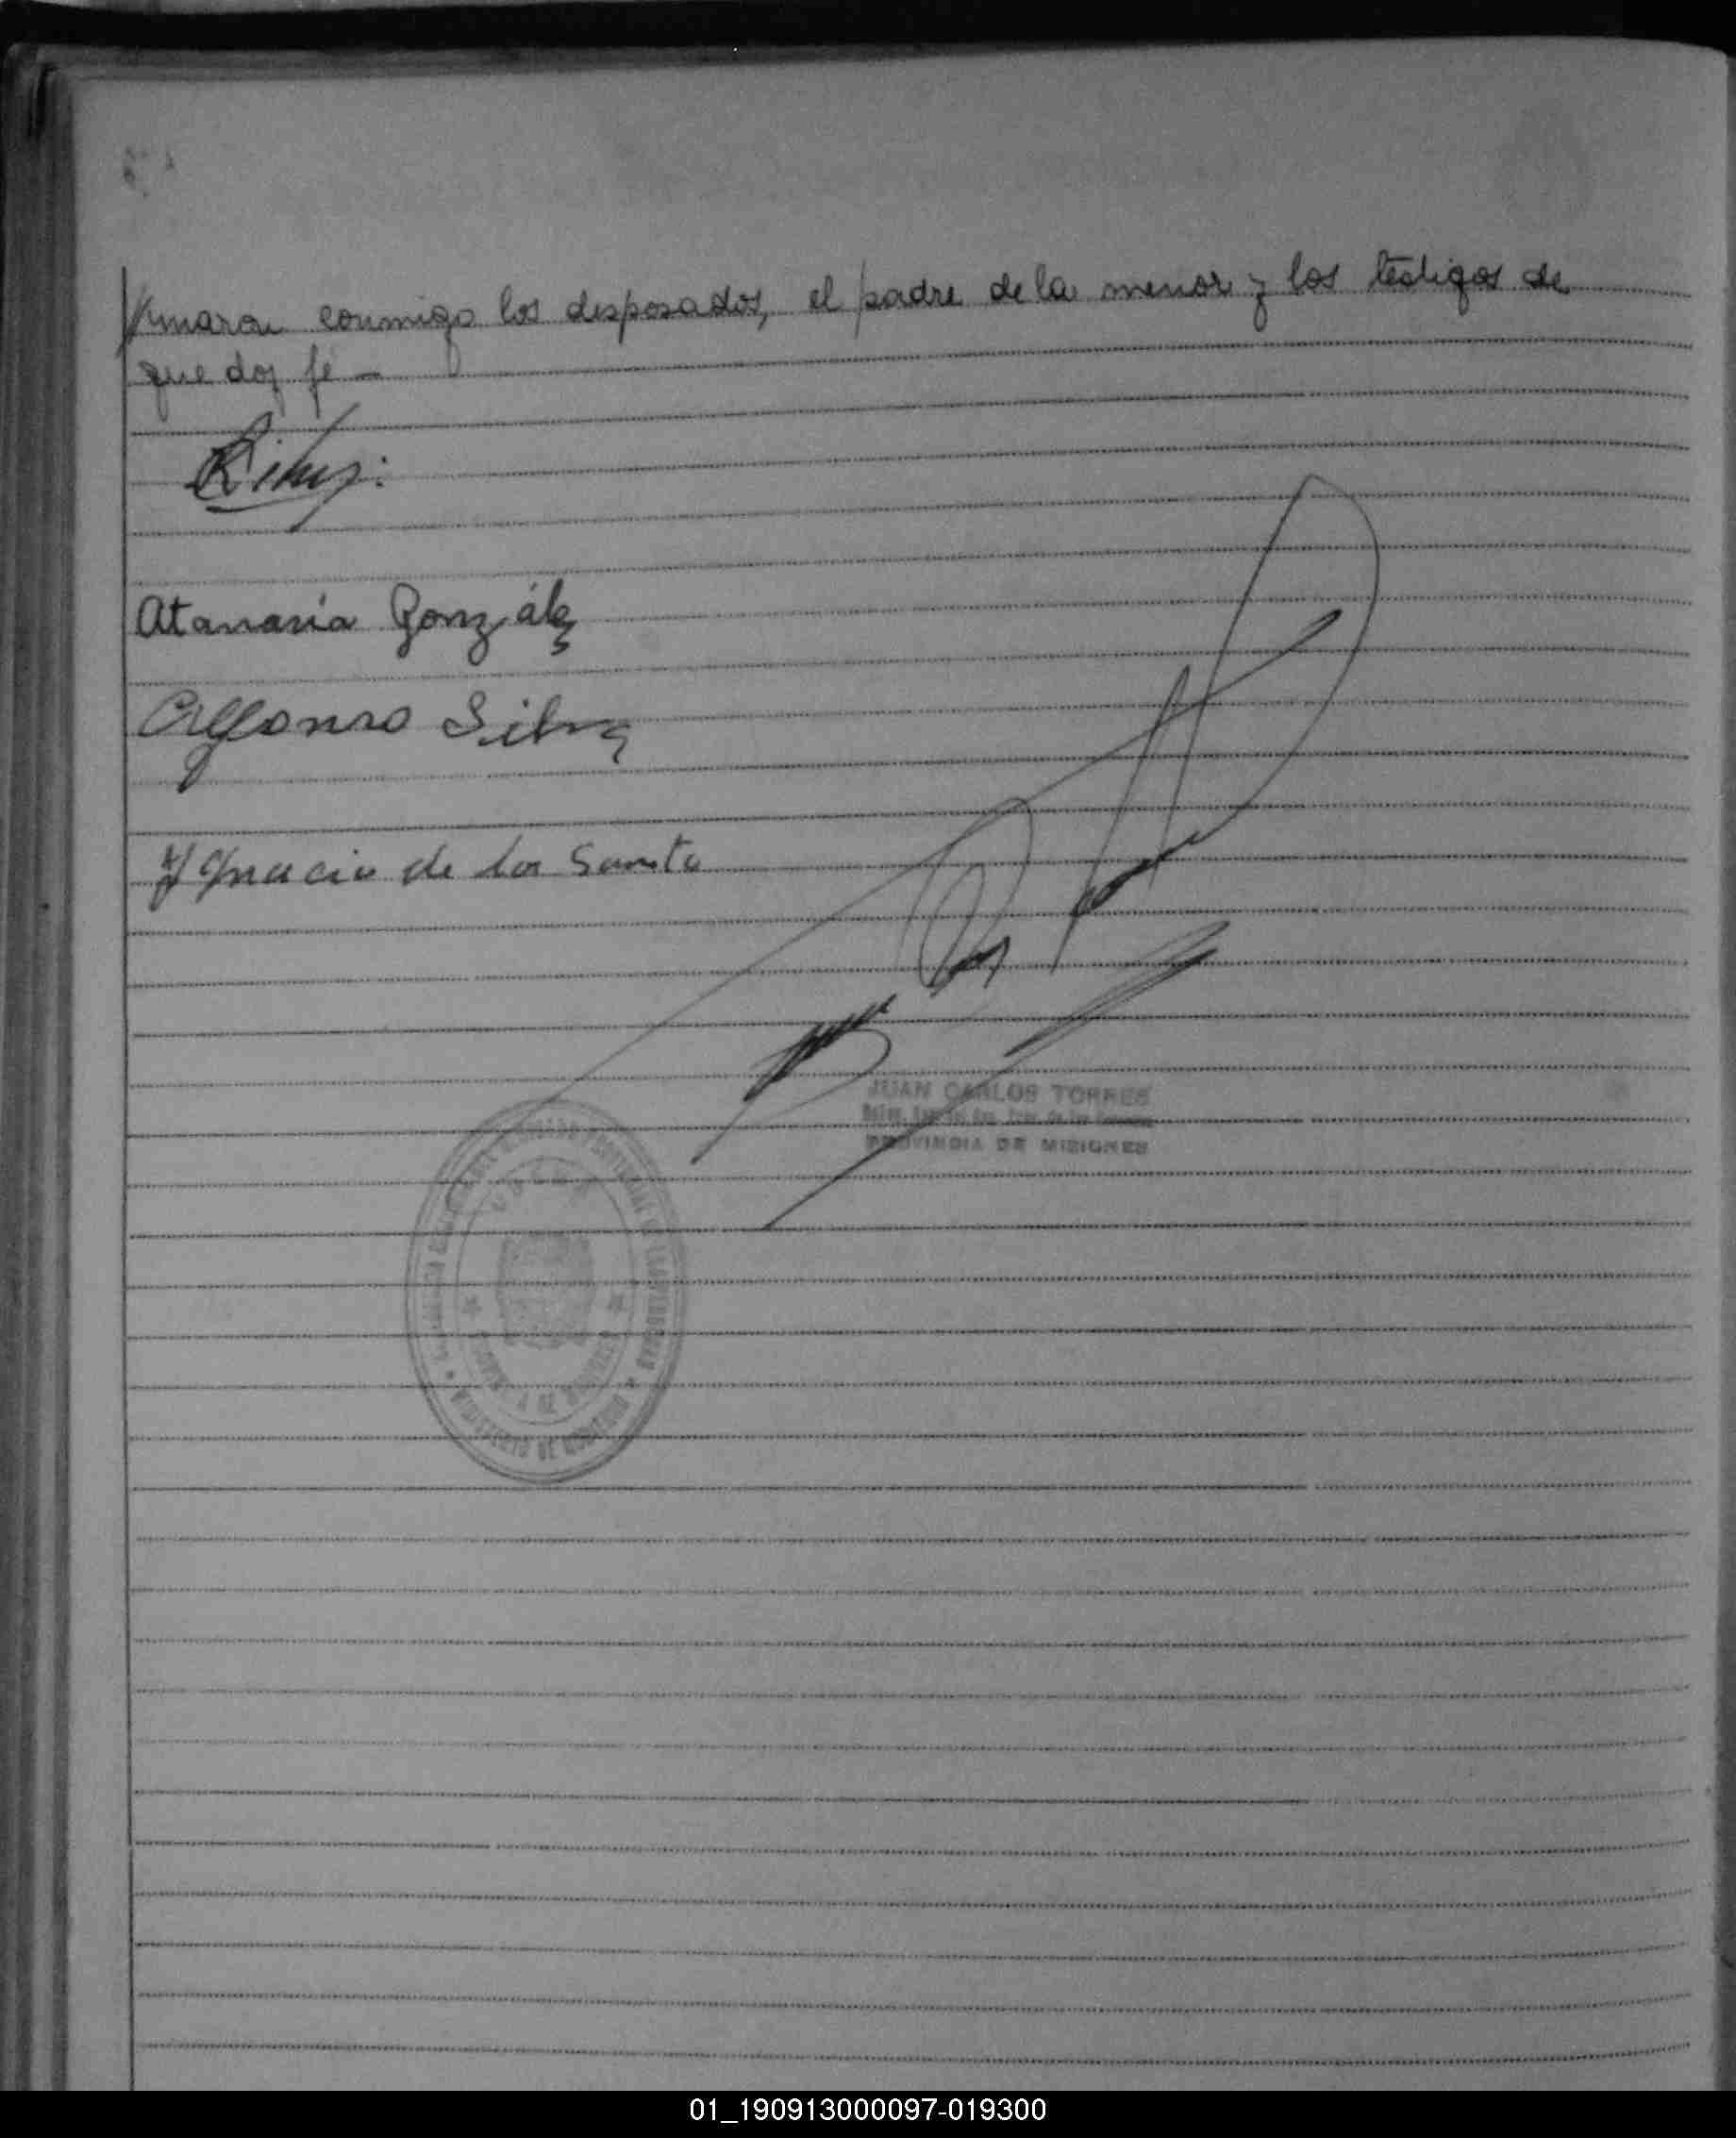 firmaron conmigo los desposados, el padre de la menor y los testigos de
que doy fé —
Atanasia González
Alfonso Silva
Ygnacio de los Santo
JUAN CARLOS TORRES
PROVINCIA DE MISIONES
MINISTERIO DE GOBIERNO
01_190913000097-019300